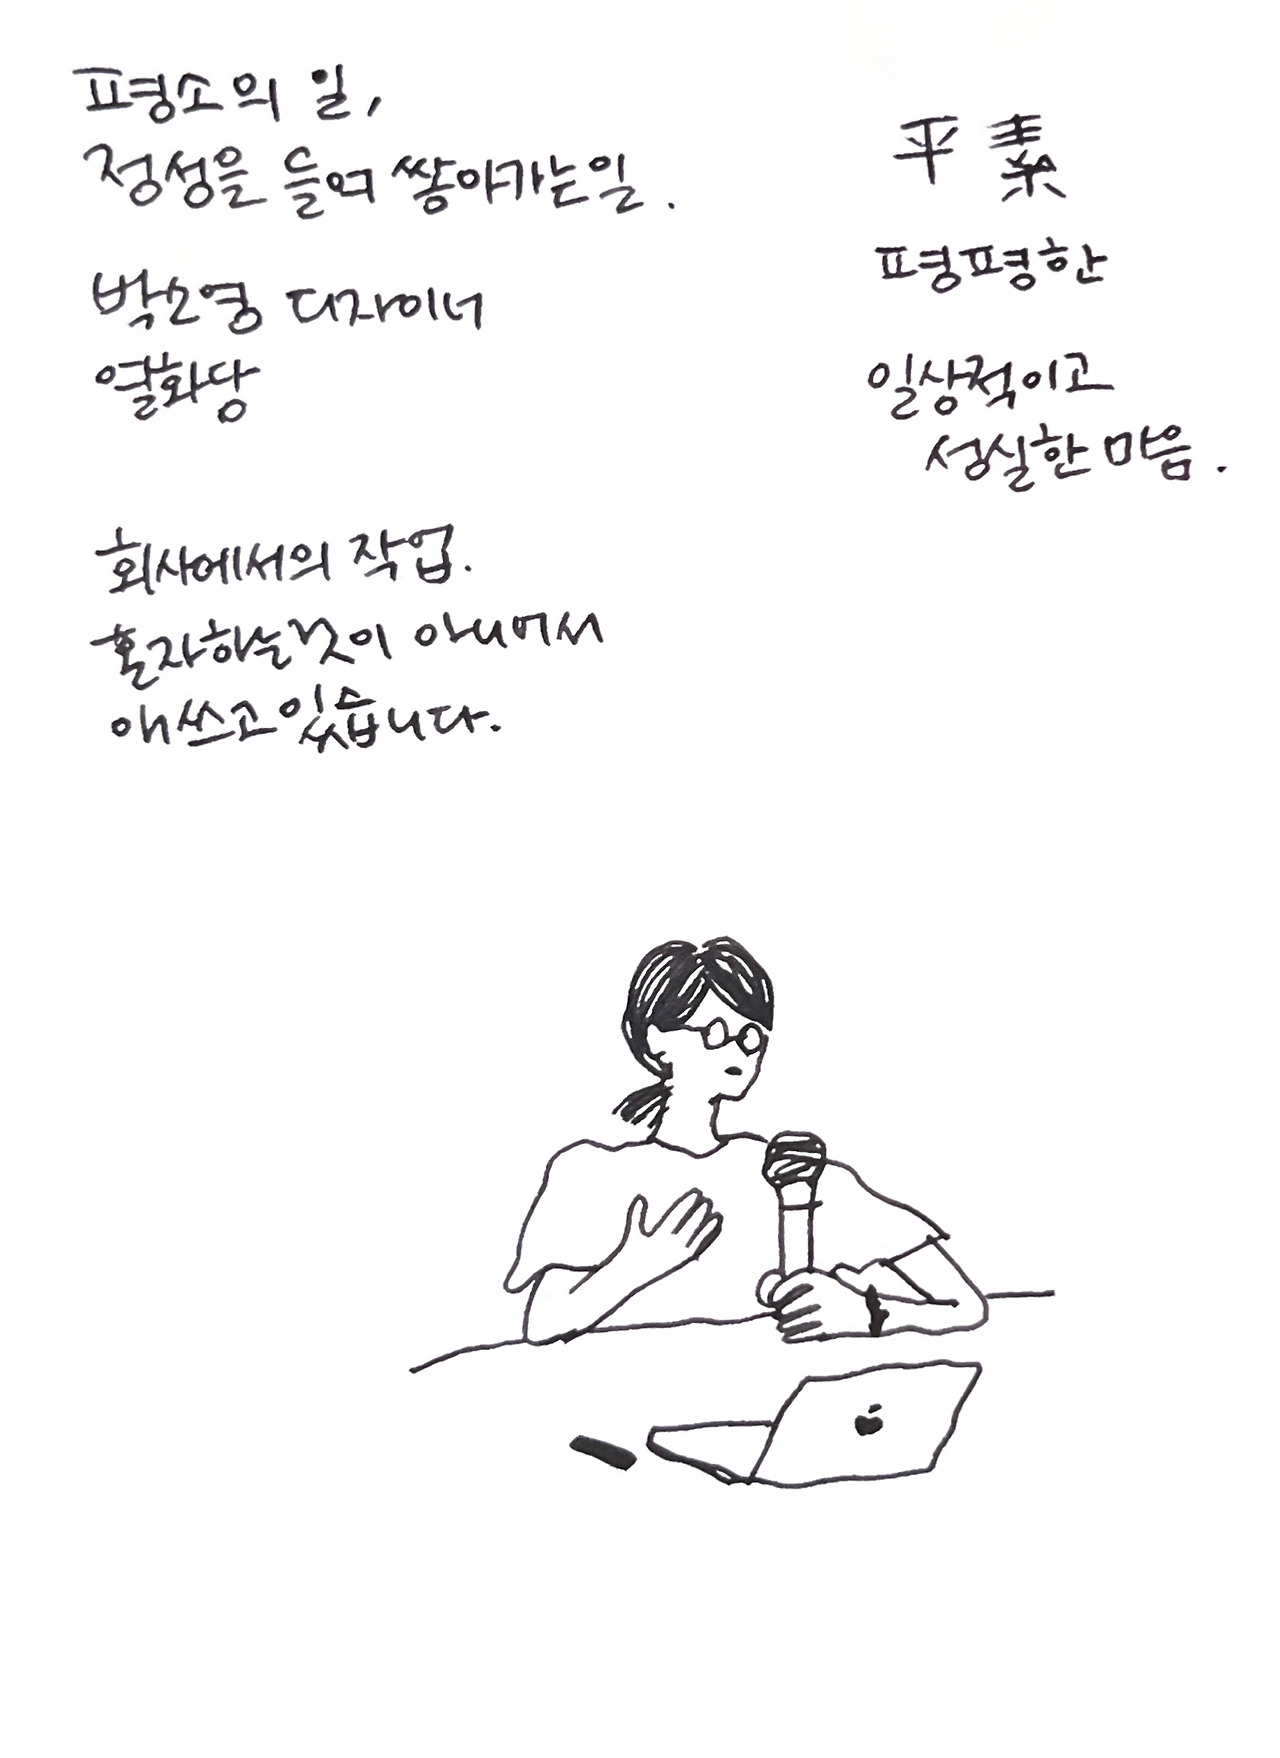 평소의 일,
정성을 들여 쌓아가는일.
박소영 디자이너
열화당
平素
평평한
일상적이고
성실한 마음.
회사에서의 작업.
혼자하는것이 아니어서
애쓰고있습니다.